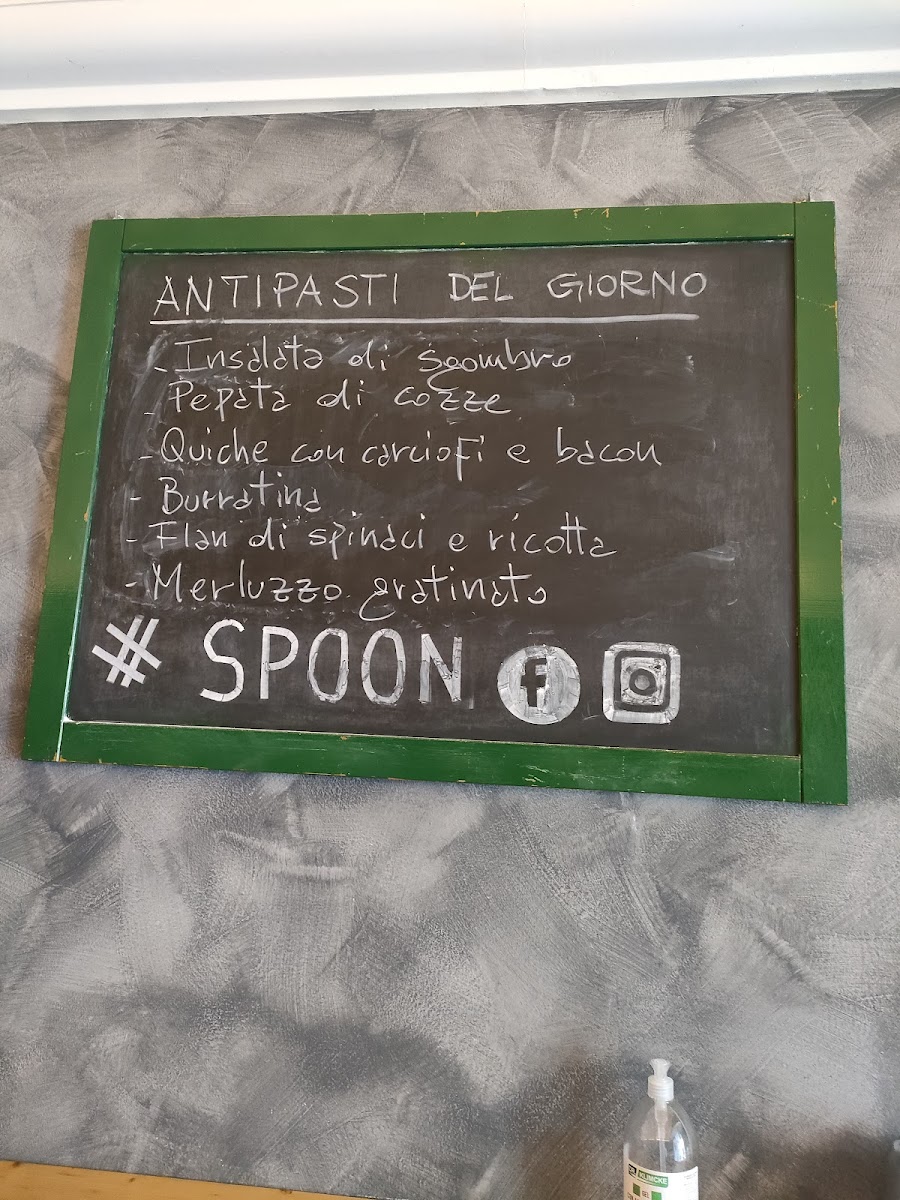 ANTIPASTI DEL GIORNO
- Insalata di sgombro
- Pepata di cozze
- Quiche con carciofi e bacon
- Burratina
- Flan di spinaci e ricotta
- Merluzzo gratinato
# SPOON f
KLIMCKE
GEL